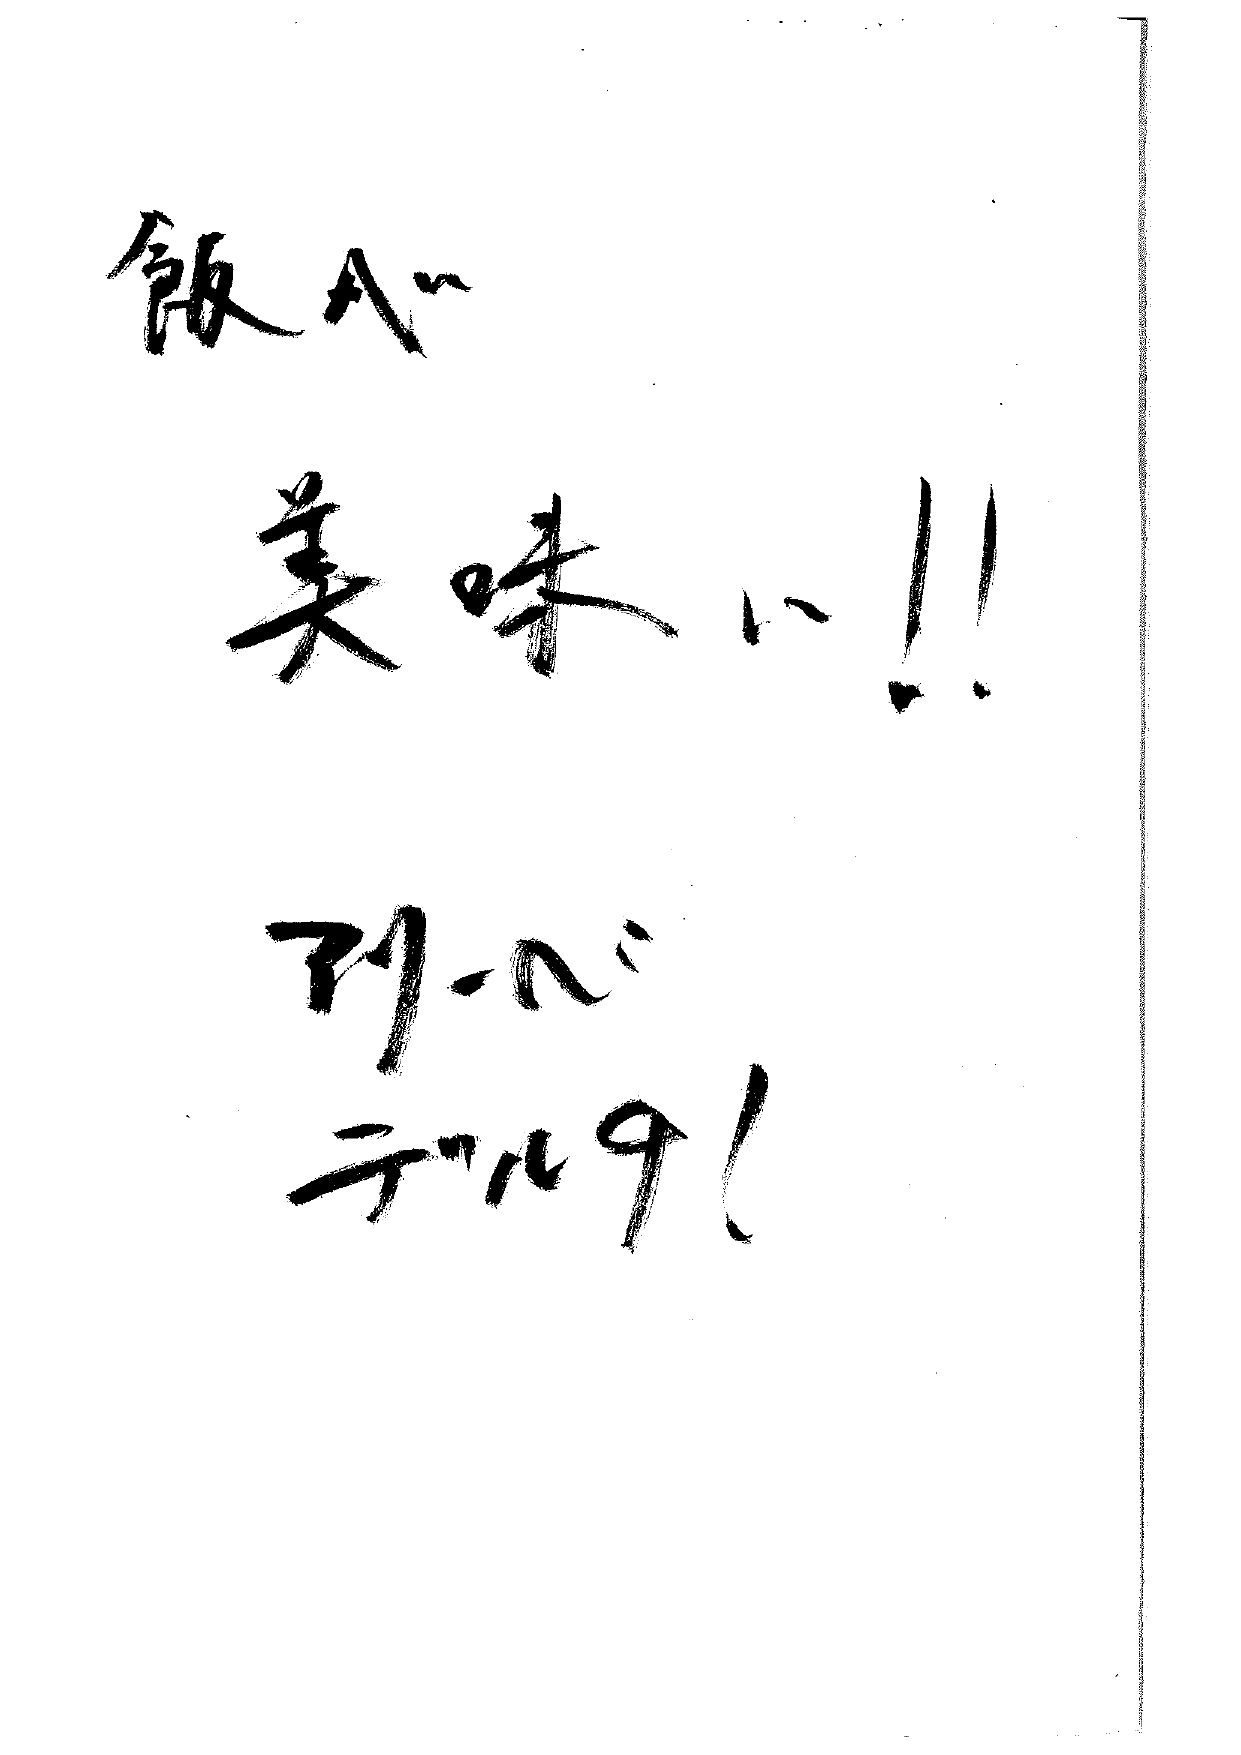 飯が
美味い!!
アリーベ
デルタ!